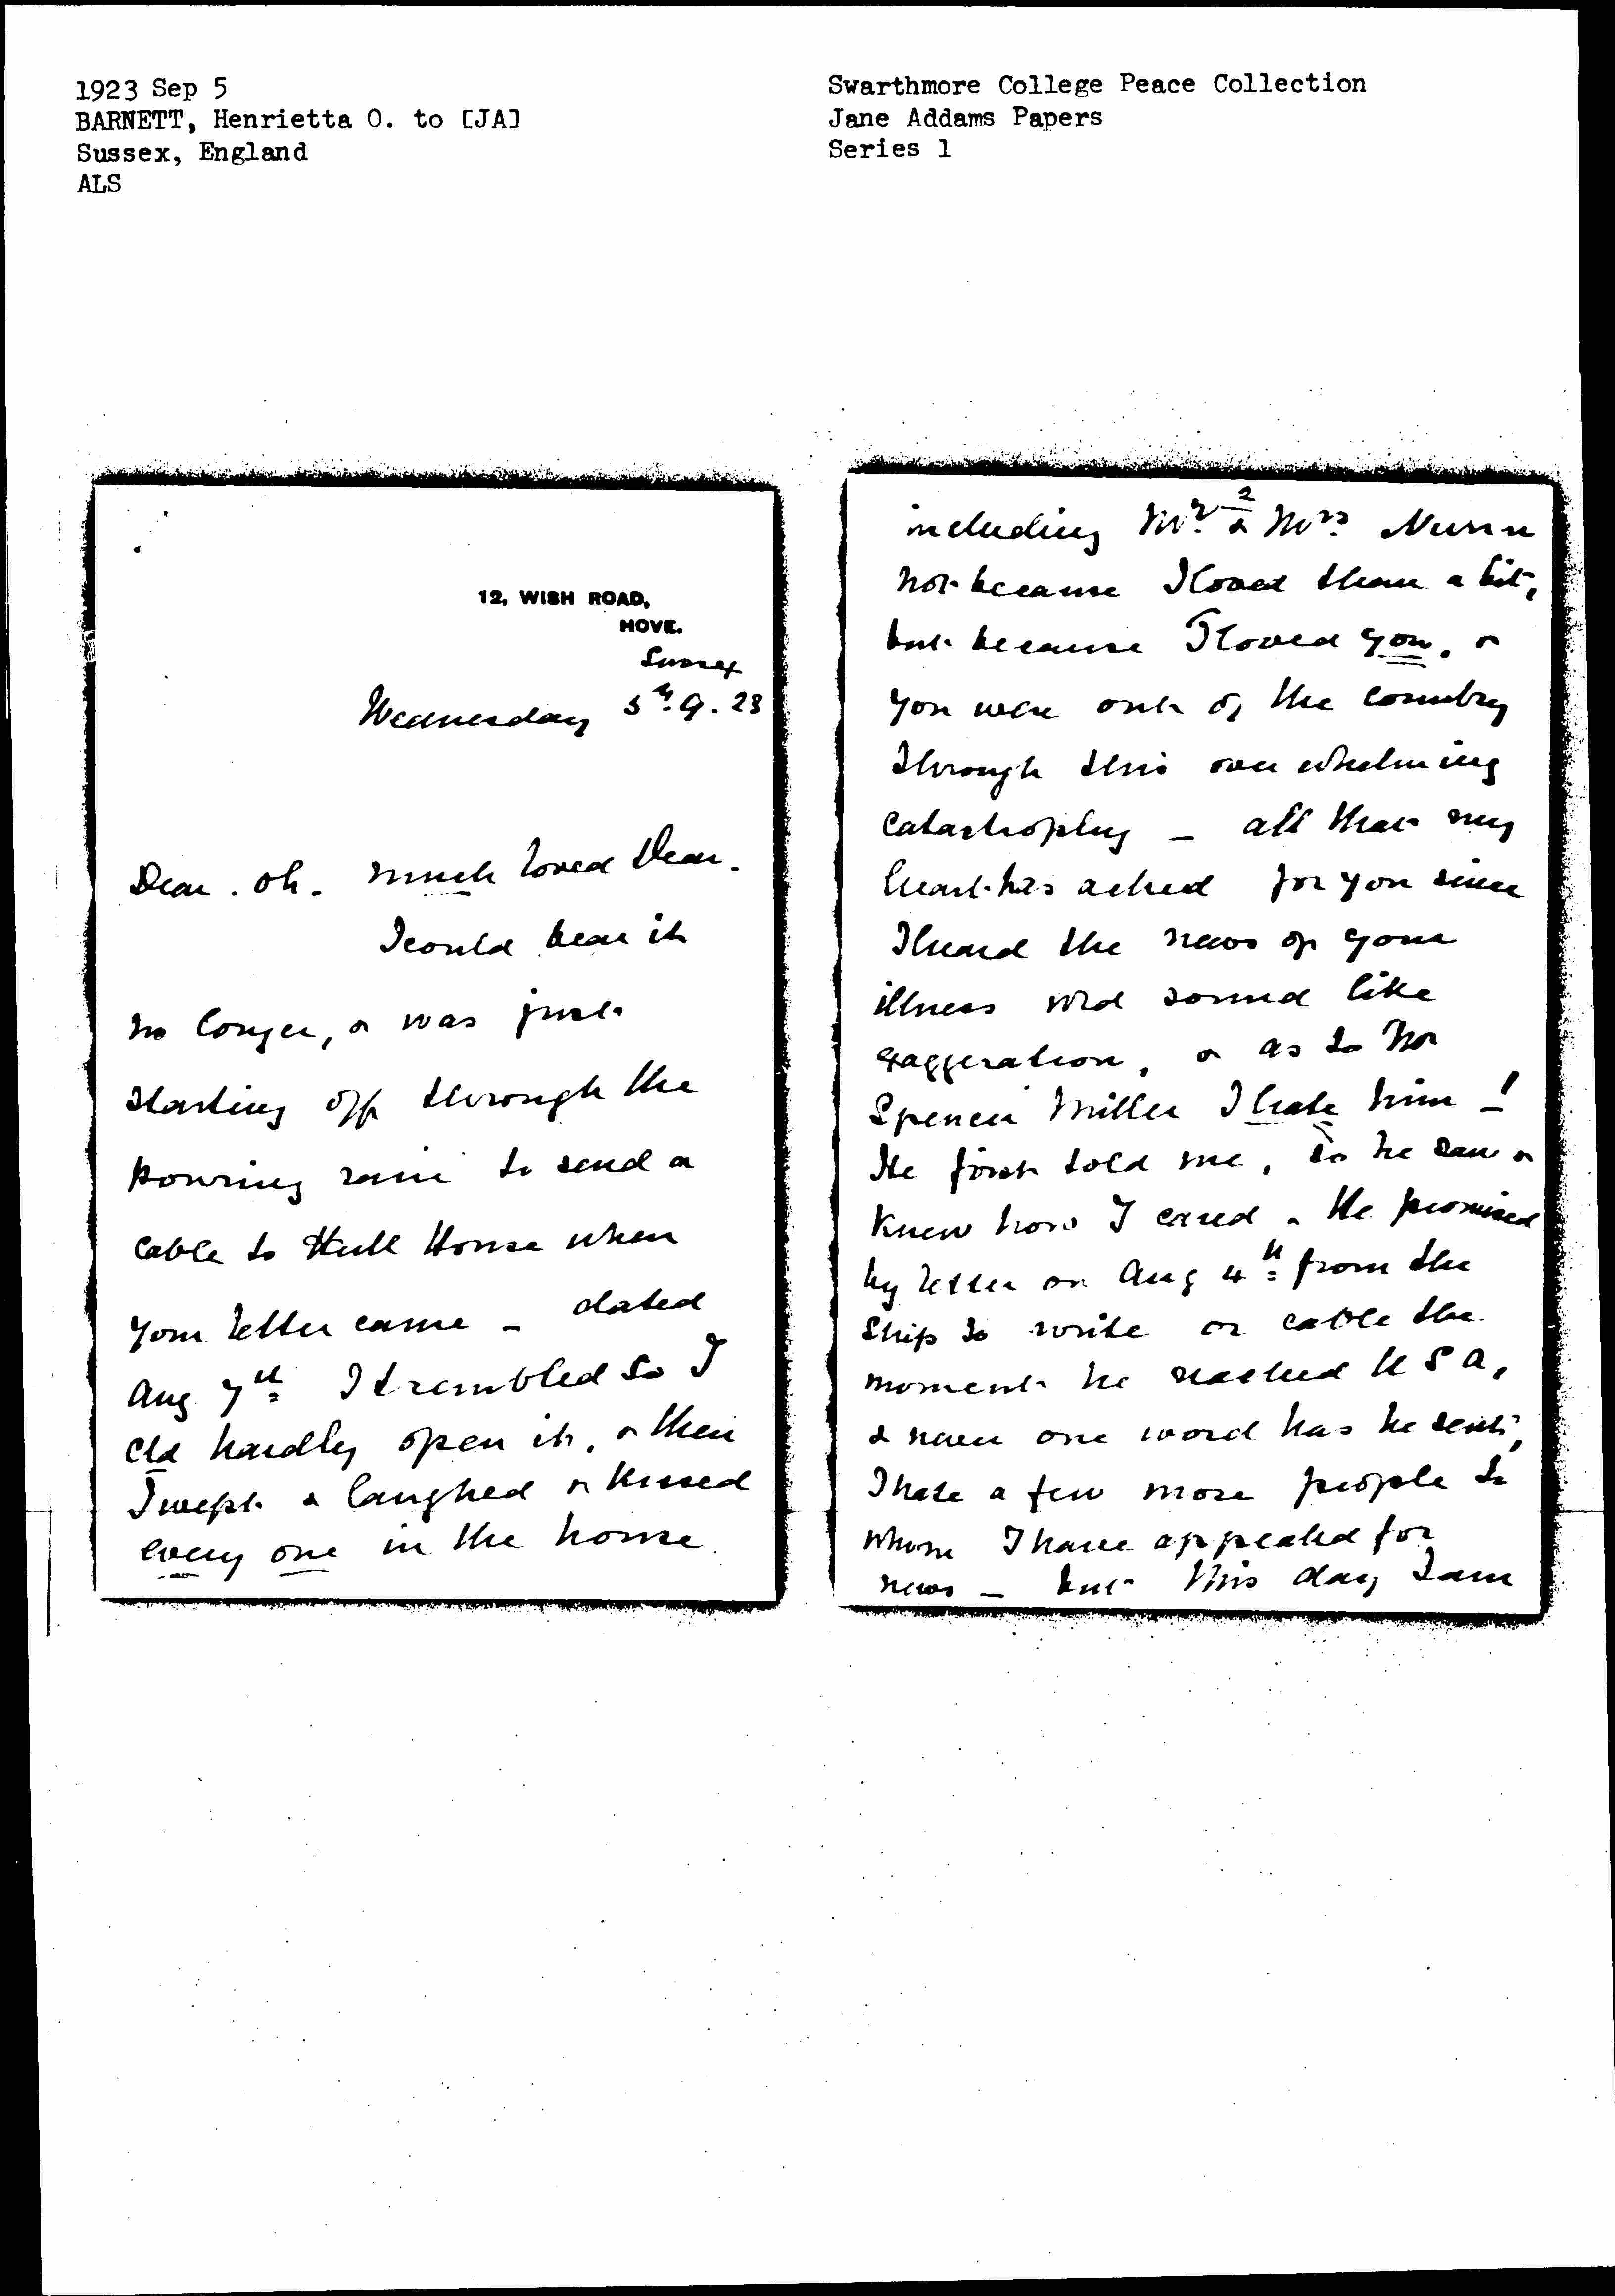 1923 Sep 5
BARNETT, Henrietta O. to [JA]
Sussex, England
ALS
Swarthmore College Peace Collection
Jane Addams Papers
Series 1
12, WISH ROAD,
HOVE.
Sussex
Wednesday 5th. 9. 23
Dear. Oh. much loved Dear.
I could bear it
no longer, & was just
starting off through the
pouring rain to send a
cable to Hull House when
your letter came – dated
Aug 7th I trembled so I
cld hardly open it, & then
I wept & laughed & kissed
every one in the house
2
including Mr. & Mrs.
not because I loved them a bit,
but because I loved you, &
you were out of the country
through this over whelming
catastrophy – all that my
heart has ached for you since
I heard the news of your
illness wld sound like
exaggeration, & as to Mr
Spencer Miller I hate him –!
He first told me, so he saw &
knew how I cared & He promised
by letter on Aug 4th from the
ship to write or cable the
moment he reached U S A,
& never one word has he sent,
I hate a few more people to
whom I have appealed for
news – but this day I am